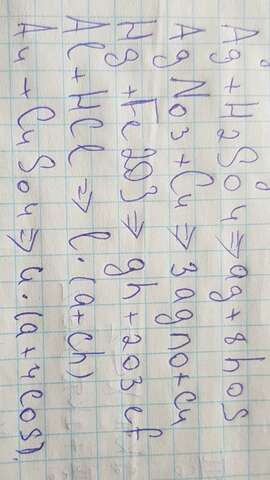 Ag + H2SO4 ⇒ ag + 8hos
AgNO3 + Cu ⇒ 3agno + cu
Hg + Fe2O3 ⇒ gh + 203ef
Al + HCl ⇒ l·(a+ch)
Au + CuSO4 ⇒ u·(a+4cos)